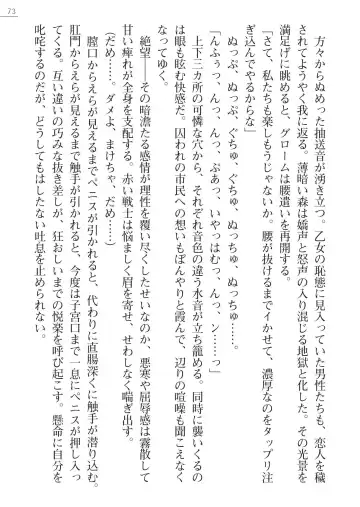 73
方々からぬめった抽送音が湧き立つ。乙女の恥態に見入っていた男性たちも、恋人を穢
されてようやく我に返る。薄暗い森は嬌声と怒声の入り混じる地獄と化した。その光景を
満足げに眺めると、グロームは腰遣いを再開する。
「さて、私たちも楽しもうじゃないか。腰が抜けるまでイかせて、濃厚なのをタップリ注
ぎ込んでやるからな」
ぬっぷ、ぬっぷ、ぐちゅ、ぬっちゅ、ぬっちゅ……。
「んふぅっ、んっ、んっ、ぷあっ、いやっはむっ、んっ、ン……っ」
上下三カ所の可憐な穴から、それぞれ音色の違う水音が立ち籠める。同時に襲いくるの
は眼も眩む快感だ。囚われの市民への想いもぼんやりと霞んで、辺りの喧噪も聞こえなく
なってゆく。
絶望――その暗澹たる感情が理性を覆い尽くしたせいなのか、悪寒や屈辱感は霧散して
甘い痺れが全身を支配する。赤い戦士は悩ましく眉を寄せ、せわしなく喘ぎ出す。
（だめ……。ダメよ、まけちゃ、だめ……）
膣口からえらが見えるまでペニスが引かれると、代わりに直腸深くに触手が潜り込む。
肛門からえらが見えるまで触手が引かれると、今度は子宮口まで一息にペニスが押し入っ
てくる。互い違いの巧みな抜き差しが、狂おしいまでの悦楽を呼び起こす。懸命に自分を
叱咤するのだが、どうしてもはしたない吐息を止められない。